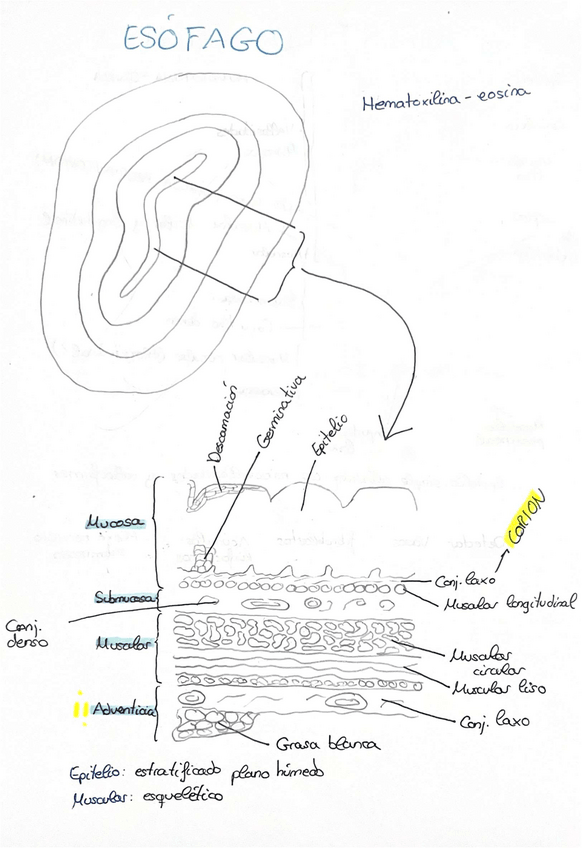 ESÓFAGO
Hematoxilina - eosina
Descamación
Germinativa
Epitelio
CORION
Mucosa
Conj. laxo
Submucosa
Muscular longitudinal
Conj.
denso
Muscular
Muscular
circular
Muscular liso
¡¡ Adventicia
Conj. laxo
Grasa blanca
Epitelio: estratificado plano húmedo
Muscular: esquelético